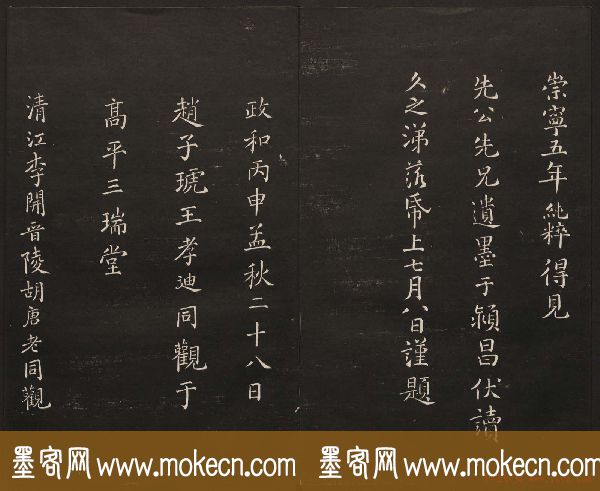 崇寧五年純粹得見
先公先兄遺墨于潁昌伏讀
久之涕落帋上七月八日謹題
政和丙申孟秋二十八日
趙子琥王孝迪同觀于
高平三瑞堂
清江李開晉陵胡唐老同觀
墨客网 www.mokecn.com 墨客网 www.mokecn.com